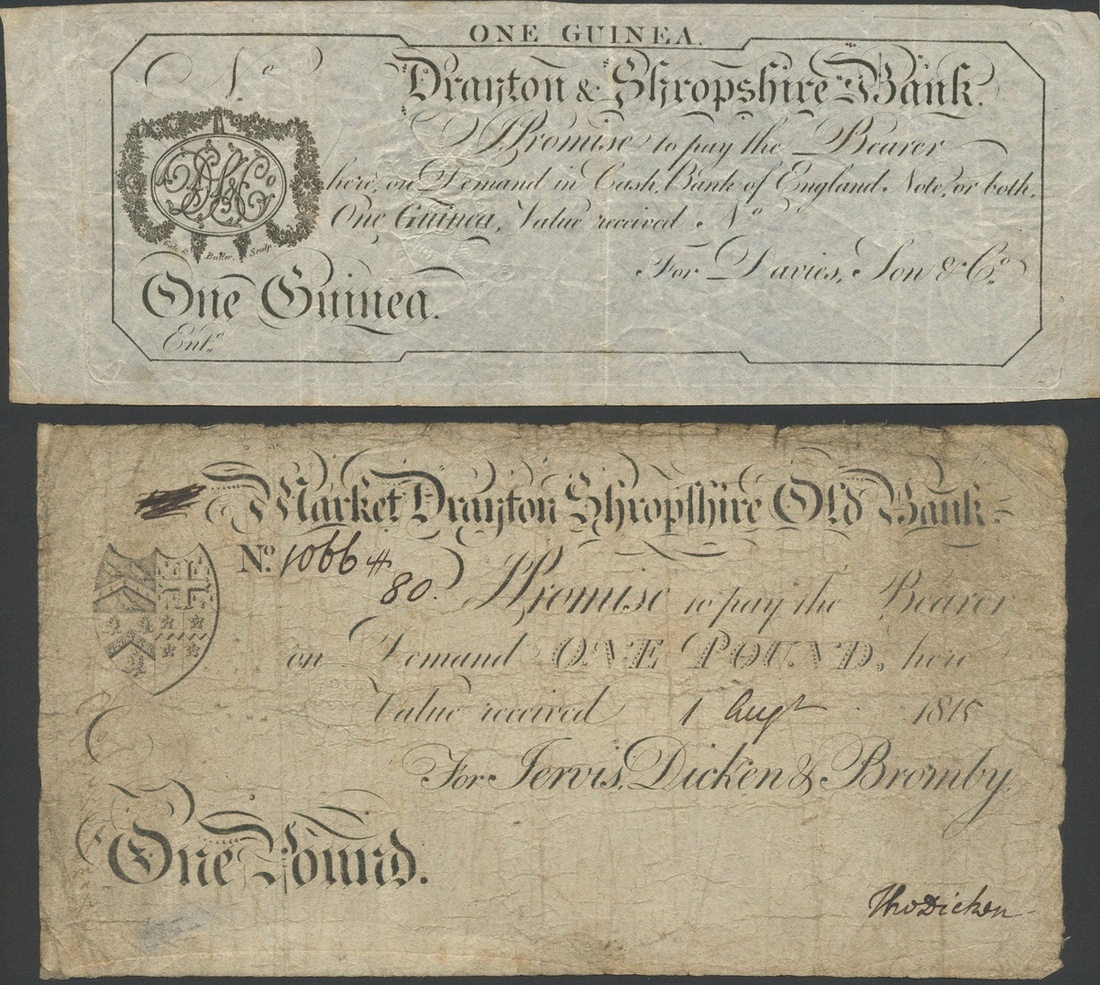 ONE GUINEA.
No
Drayton & Shropshire Bank.
I Promise to pay the Bearer
here, on Demand in Cash, Bank of England Note, or both,
One Guinea, Value received No
For Davies, Son & Co.
Butler, Sculp
One Guinea.
Entd.
Market Drayton Shropshire Old Bank.
No. 1066 #
80. I Promise to pay the Bearer
on Demand ONE POUND, here
Value received 1 Augt 1815
For Jervis, Dicken & Bromby.
One Pound.
Tho Dicken